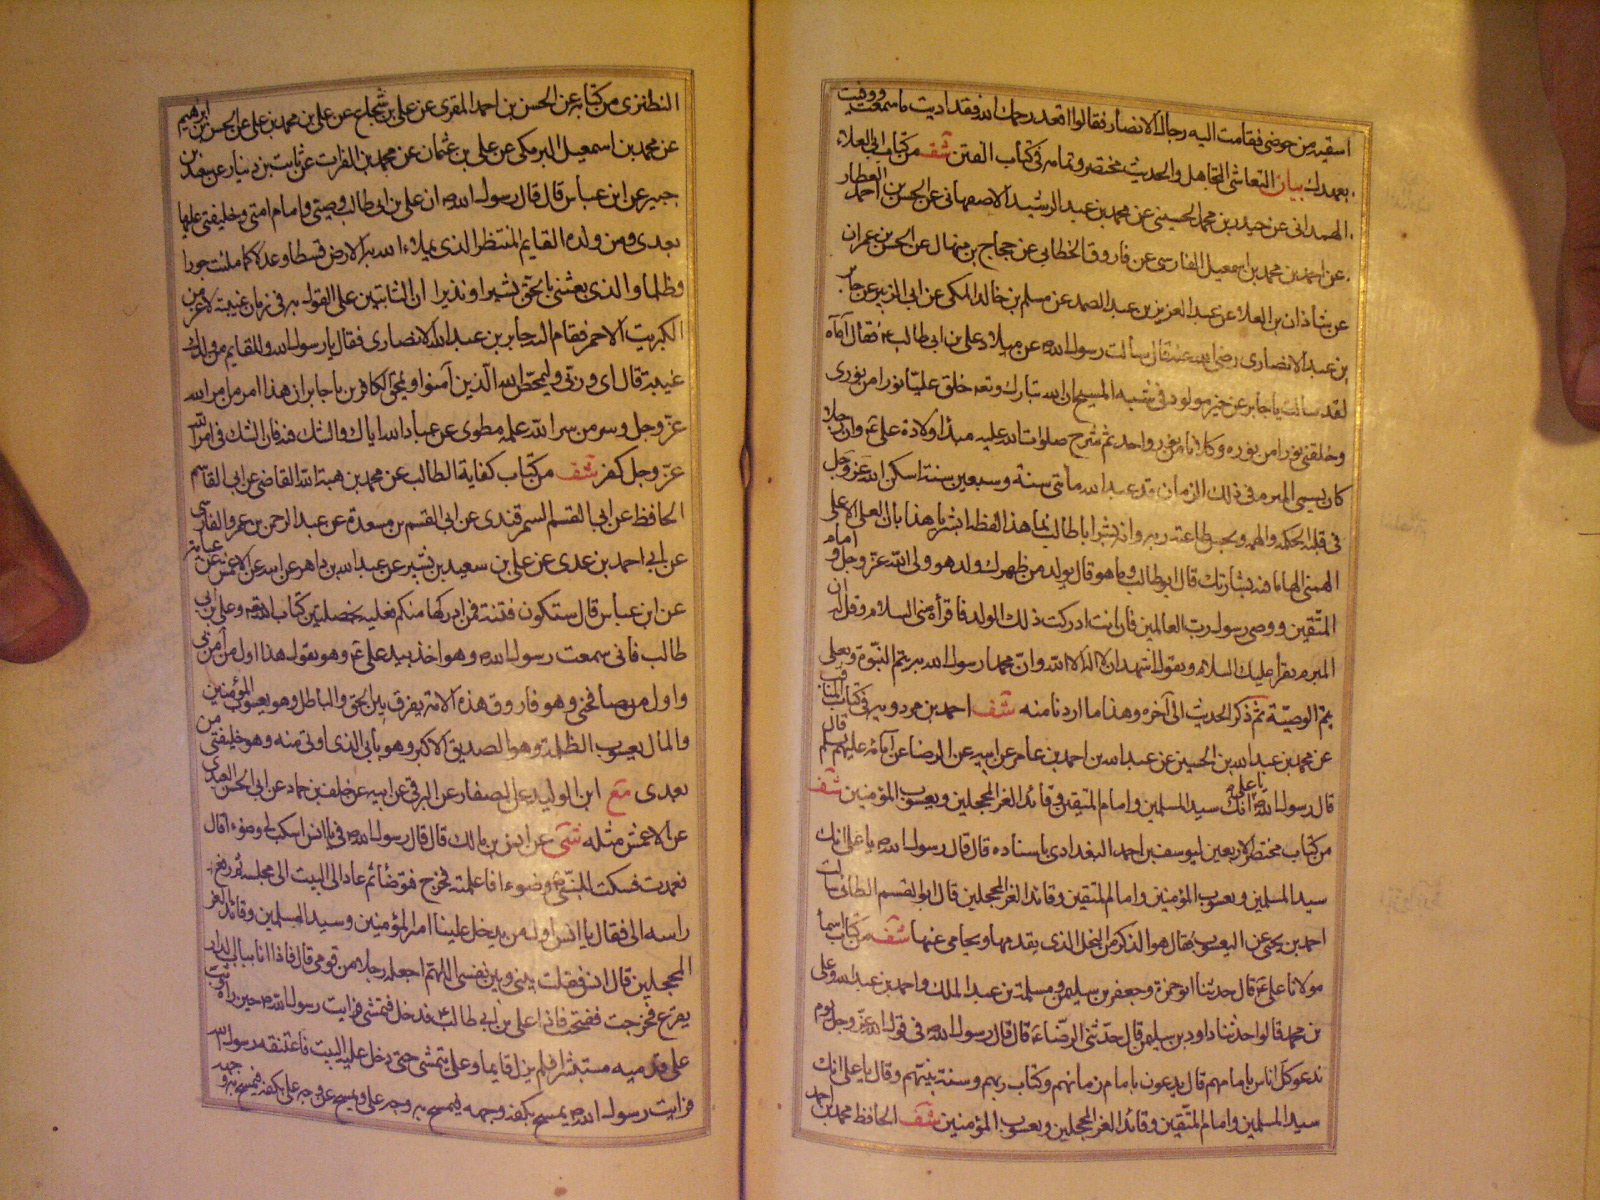 اسقيه من حوضى فقامت اليه رجال الانصار فقالوا اقعد رحمك الله فقد اديت ما سمعت ووفيت
بعهدك بيان التعاشى التجاهل والحديث مختصر وتمامه فى كتاب الفتن شف من كتاب ابى العلاء
الهمدانى عن حيدر بن محمد الحسينى عن محمد بن عبد الرشيد الاصفهانى عن الحسن بن احمد العطار
عن احمد بن محمد بن اسمعيل الفارسى عن فاروق الخطابى عن حجاج بن منهال عن الحسن بن عمران
عن شاذان بن العلاء عن عبد العزيز بن عبد الصمد عن مسلم بن خالد المكى عن ابى الزبير عن جابر
بن عبد الله الانصارى رضى الله عنه قال سالت رسول الله عن ميلاد على بن ابى طالب فقال آه آه
لقد سالت يا جابر عن خير مولود فى شبه المسيح ان الله تبارك وتعه خلق عليا نورا من نورى
وخلقنى نورا من نوره وكلانا من نور واحد ثم شرح صلوات الله عليه مبدأ ولادة على ع وان رجلا
كان يسمى المبرم فى ذلك الزمان قد عبد الله مأتى سنة وسبعين سنة اسكن الله عز وجل
فى قلبه الحكمة والهمه بحسن طاعته ربه وانه بشر ابا طالب بما هذا لفظه ابشر يا هذا بان العلى الاعلى
الهمنى الهاما فيه بشارتك قال ابو طالب وما هو قال يولد من ظهرك ولد هو ولى الله عز وجل وامام
المتقين ووصى رسول رب العالمين فان انت ادركت ذلك الولد فاقرأه منى السلام وقل له ان
المبرم يقرأ عليك السلام ويقول اشهد ان لا اله الا الله وان محمدا رسول الله به يتم النبوة وبعلى
يتم الوصية ثم ذكر الحديث الى آخره وهذا ما اردنا منه شف احمد بن مردويه فى كتاب المناقب
عن محمد بن عبد الله بن الحسين عن عبد الله بن احمد بن عامر عن ابيه عن الرضا عن آبائه عليهم السلم قال
قال رسول الله يا على انك سيد المسلمين وامام المتقين وقائد الغر المحجلين ويعسوب المؤمنين شف
من كتاب مختصر الاربعين ليوسف بن احمد البغدادى باسناده قال قال رسول الله يا على انك
سيد المسلمين ويعسوب المؤمنين وامام المتقين وقائد الغر المحجلين قال ابو القسم الطائى سالت
احمد بن يحيى عن اليعسوب فقال هو الذكر من النحل الذى يقدمها ويحامى عنها شف من كتاب اسماء
مولانا على ع قال حدثنا ابو حمزة وجعفر بن سليمن ومسلمة بن عبد الملك واحمد بن عبد الله وعلى
بن محمد قالوا حدثنا داود بن سليمن قال حدثنى الرضا ع قال قال رسول الله فى قول الله عز وجل يوم
ندعو كل اناس بامامهم قال يدعون بامام زمانهم وكتاب ربهم وسنة نبيهم وقال يا على انك
سيد المسلمين وامام المتقين وقائد الغر المحجلين ويعسوب المؤمنين شف الحافظ محمد بن احمد
النطنزى من كتابه عن الحسن بن احمد المقرى عن على بن شجاع عن على بن محمد بن على عن الحسن بن ابرهيم
عن محمد بن اسمعيل البرمكى عن على بن عثمان عن محمد بن الفرات عن ثابت بن دينار عن سعيد بن
جبير عن ابن عباس قال قال رسول الله ان على بن ابى طالب وصيى وامام امتى وخليفتى عليها
بعدى ومن ولده القايم المنتظر الذى يملاء الله به الارض قسطا وعدلا كما ملئت جورا
وظلما والذى بعثنى بالحق بشيرا ونذيرا ان الثابتين على القول به فى زمان غيبته لاعز من
الكبريت الاحمر فقام اليه جابر بن عبد الله الانصارى فقال يا رسول الله وللقايم من ولدك
غيبة قال اى وربى وليمحص الله الذين آمنوا ويمحق الكافرين يا جابر ان هذا امر من امر الله
عز وجل وسر من سر الله علمه مطوى عن عباد الله اياك والشك فيه فان الشك فى امر الله
عز وجل كفر شف من كتاب كفاية الطالب عن محمد بن هبة الله القاضى عن ابى القاسم
الحافظ عن ابى القسم السمرقندى عن ابى القسم بن مسعدة عن عبد الرحمن بن عمرو الفارسى
عن ابى احمد بن عدى عن على بن سعيد بن بشير عن عبد الله بن داهر عن ابيه عن الاعمش عن عباية
عن ابن عباس قال ستكون فتنة فمن ادركها منكم فعليه بخصلتين كتاب الله وعلى بن ابى
طالب فانى سمعت رسول الله وهو اخذ بيد على ع وهو يقول هذا اول من آمن بى
واول من يصافحنى وهو فاروق هذه الامة يفرق بين الحق والباطل وهو يعسوب المؤمنين
والمال يعسوب الظلمة وهو الصديق الاكبر وهو بابى الذى اوتى منه وهو خليفتى من
بعدى مع ابن الوليد عن الصفار عن البرقى عن ابيه عن خلف بن حماد عن ابى الحسن العبدى
عن الاعمش مثله شى عن انس بن مالك قال قال رسول الله يا انس اسكب لى وضوءا قال
فعمدت فسكبت للنبى وضوءا فاعلمته فخرج فتوضأ ثم عاد الى البيت الى مجلسه ثم رفع
راسه الى فقال يا انس اول من يدخل علينا امير المؤمنين وسيد المسلمين وقائد الغر
المحجلين قال انس فقلت بينى وبين نفسى اللهم اجعله رجلا من قومى قال فاذا انا بباب الدار
يقرع فخرجت ففتحت فاذا على بن ابى طالب فدخل فتمشى فرايت رسول الله حين رآه وثب
على قدميه مستبشرا فلم يزل قايما وعلى يتمشى حتى دخل عليه البيت فاعتنقه رسول الله
فرايت رسول الله يمسح بكفه وجهه فيمسح به وجه على ويمسح عن وجه على بكفه فيمسح به وجهه